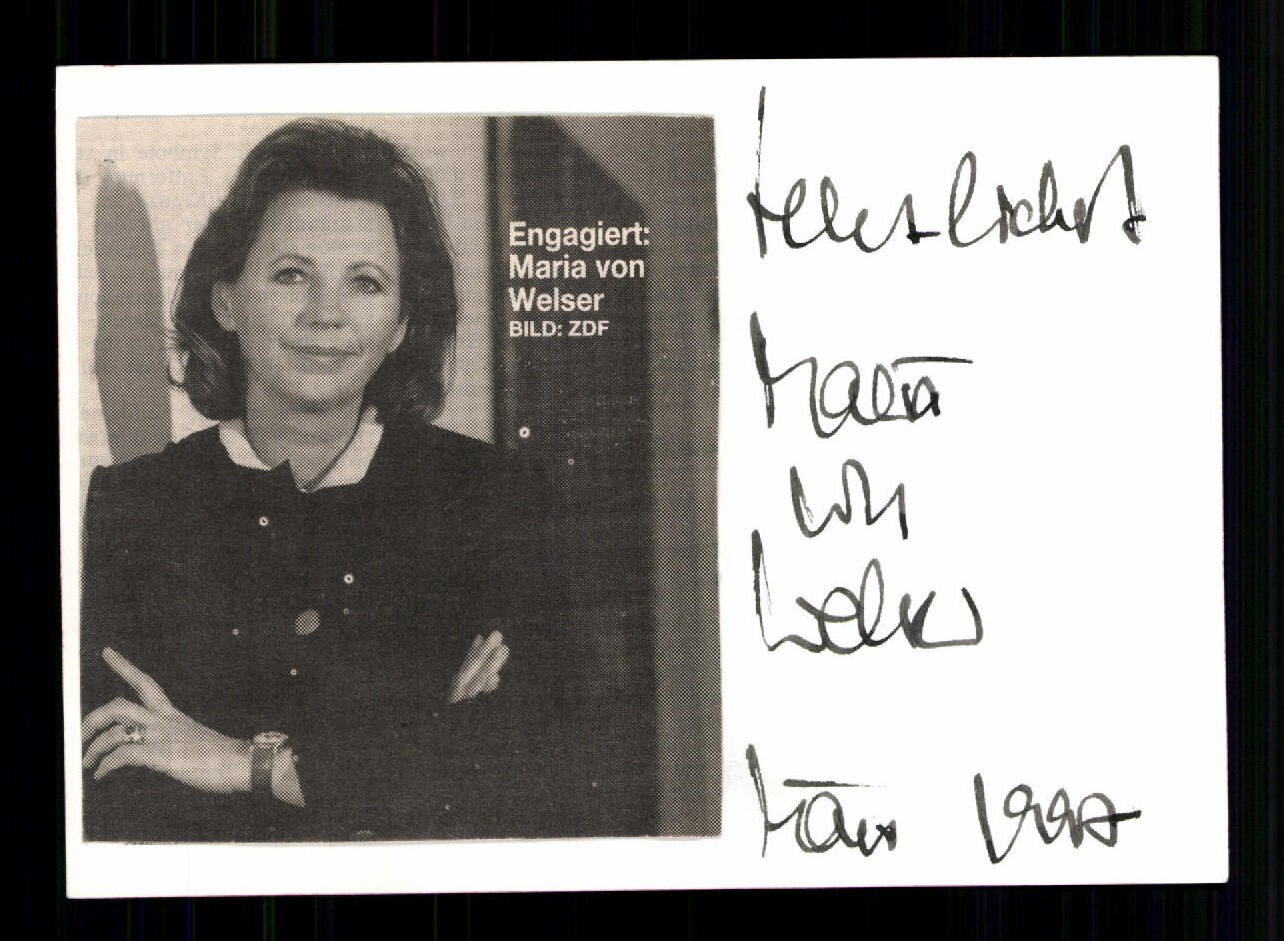 Engagiert:
Maria von
Welser
BILD: ZDF
Herzlichst
Maria
von
Welser
März